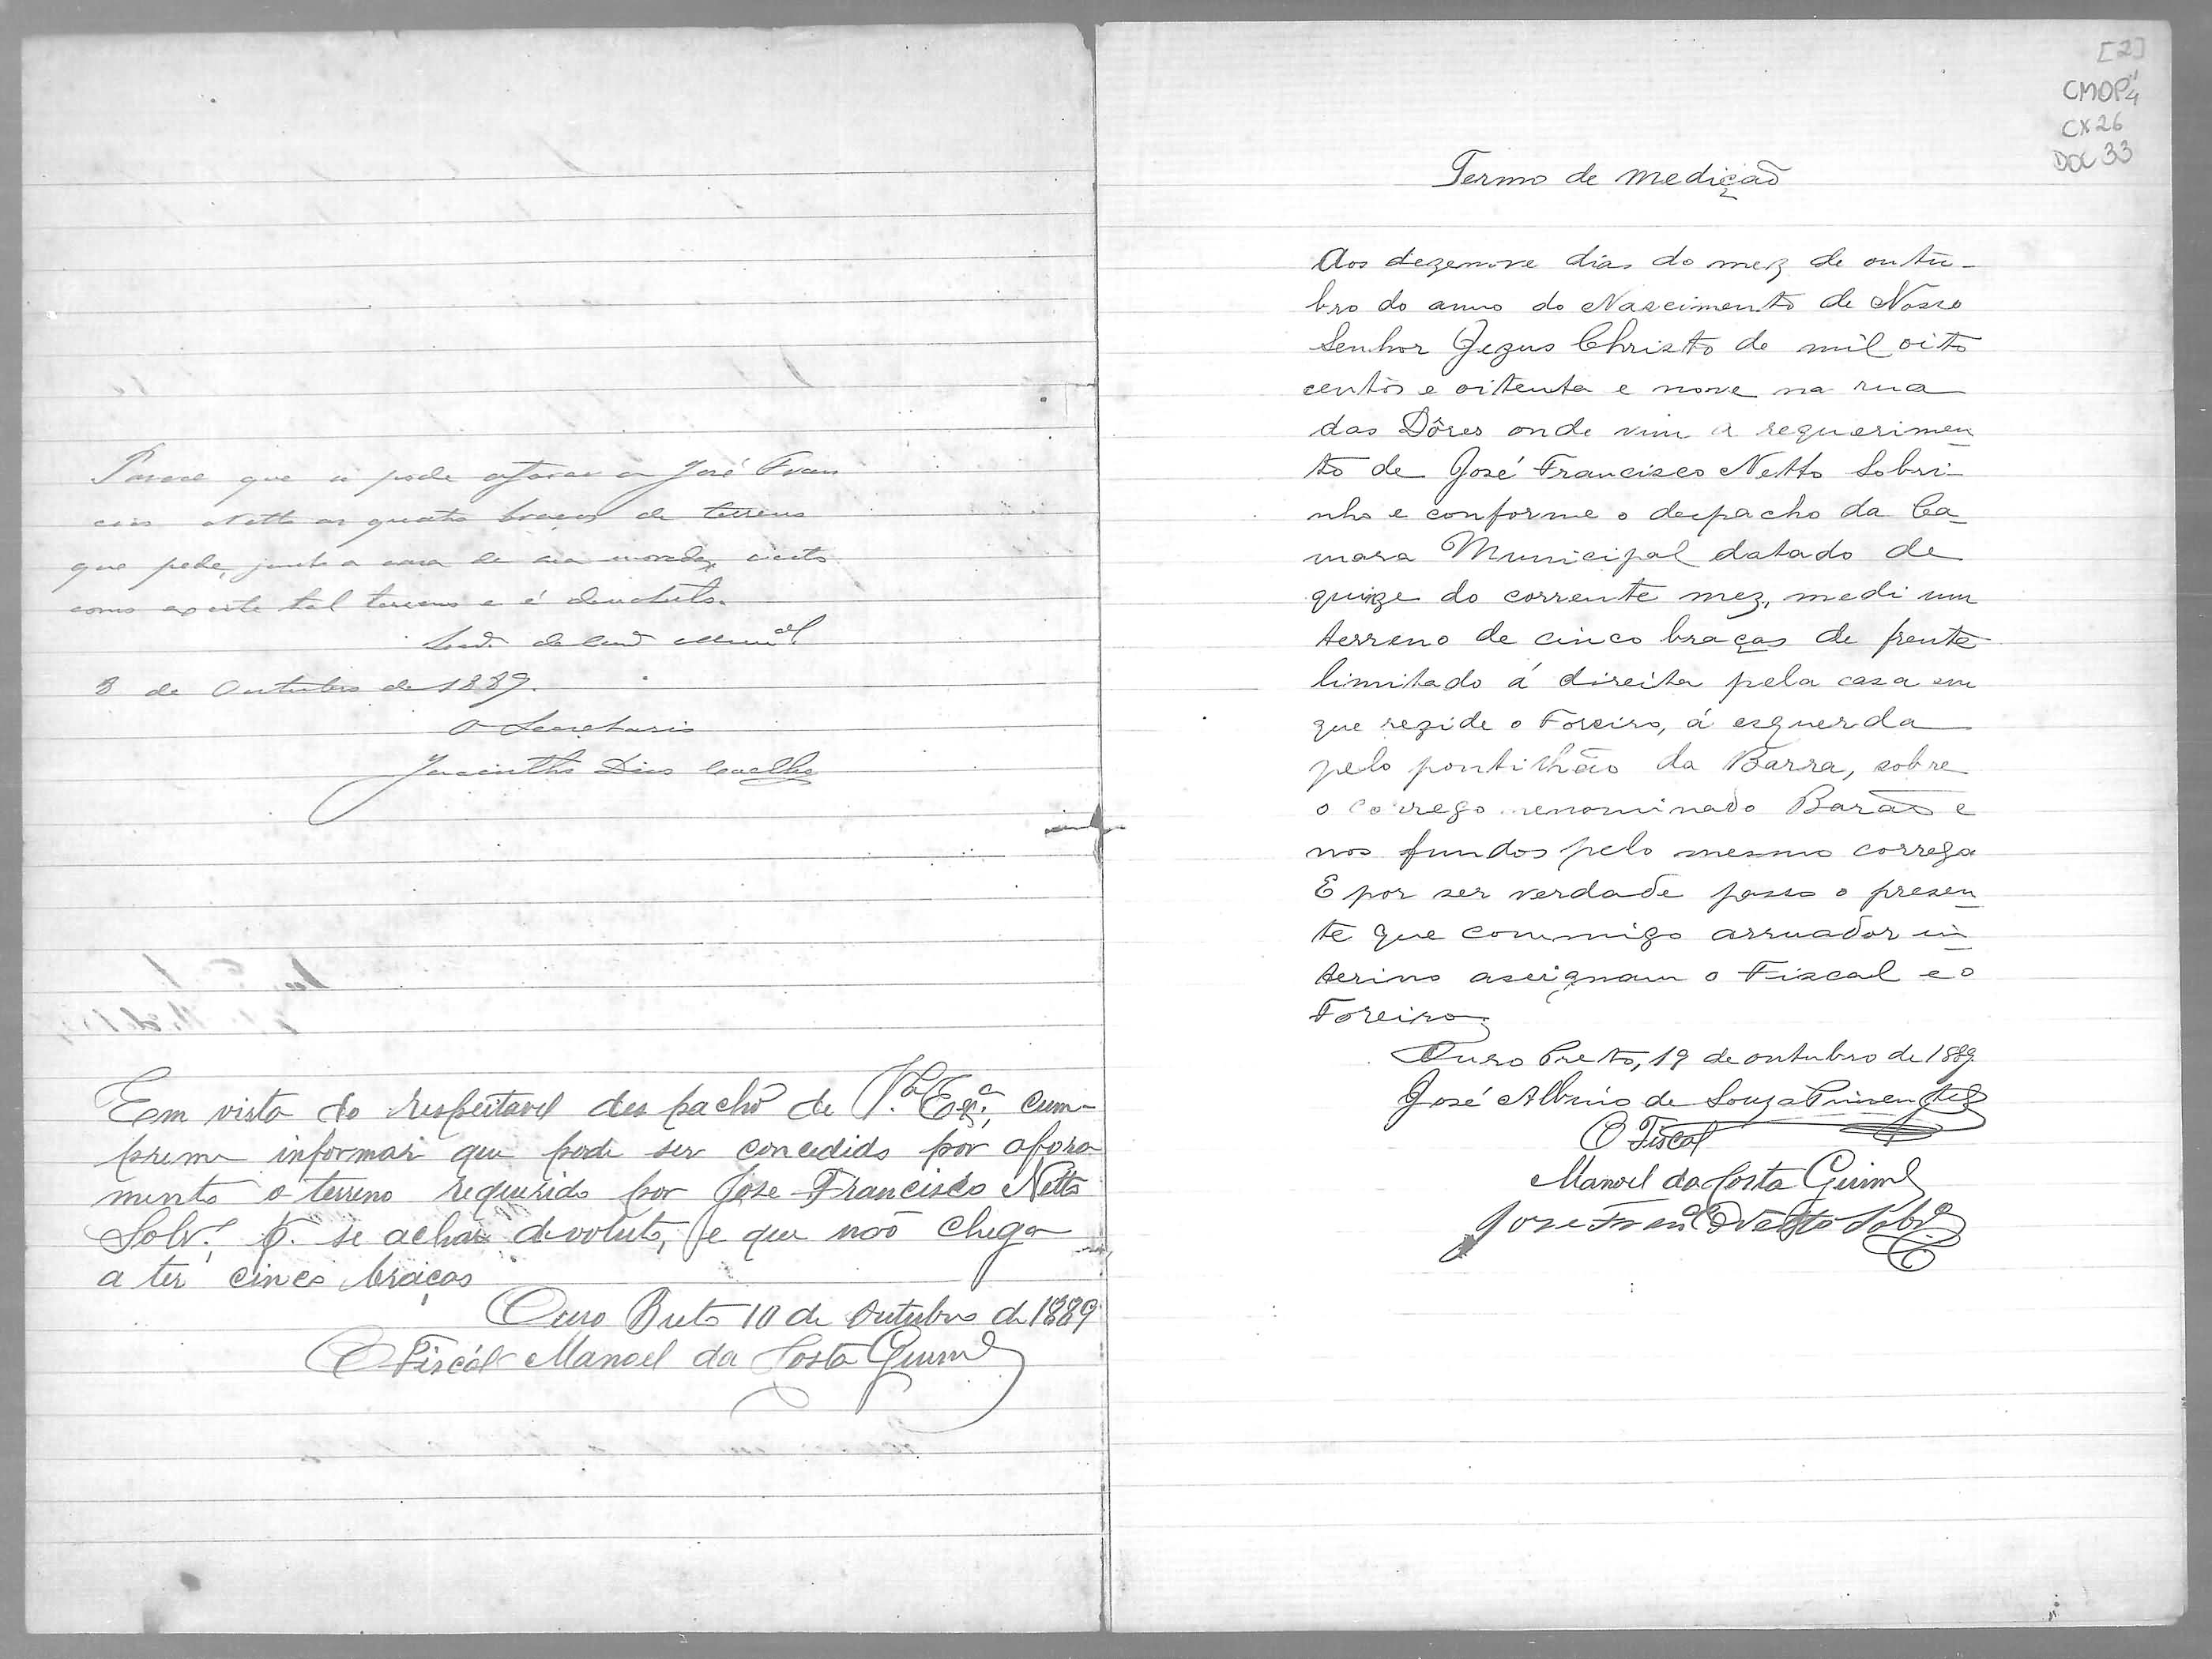 Parece que se pode aforar a José Fran
cisco Netto as quatro braças de terreno
que pede, junto a casa de sua morada, visto
como existe tal terreno e é devoluto.
3 de Outubro de 1889.
O Secretario
Jacintho Dias Coelho
Em vista do respeitavel despacho de V.ª Ex.ª, cum-
preme informar que pode ser concedido por afora
mento o terreno requerido por Jose Francisco Netto
Sobr.º p. se achar devoluto, e que não chega
a ter cinco braças
Ouro Preto 10 de Outubro de 1889
O Fiscál Manoel da Costa Guim.es
[2]
CMOP 4
CX 26
DOC 33
Termo de medição
Aos dezenove dias do mez de outu-
bro do anno do Nascimento de Nosso
Senhor Jezus Christo de mil oito
centos e oitenta e nove na rua
das Dôres onde vim a requerimen
to de José Francisco Netto Sobri-
nho e conforme o despacho da Ca-
mara Municipal datado de
quinze do corrente mez, medi um
terreno de cinco braças de frente
limitado á direita pela casa em
que rezide o Foreiro, á esquerda
pelo pontilhão da Barra, sobre
o corrego denominado Barão e
nos fundos pelo mesmo corrego
E por ser verdade passo o presen
te que commigo arruador in
terino assignam o Fiscal e o
Foreiro
Ouro Preto, 19 de outubro de 1889.
José Albino de Souza Pimentel
O Fiscal
Manoel da Costa Guim.es
Jose Fran.co Netto Sobr.o